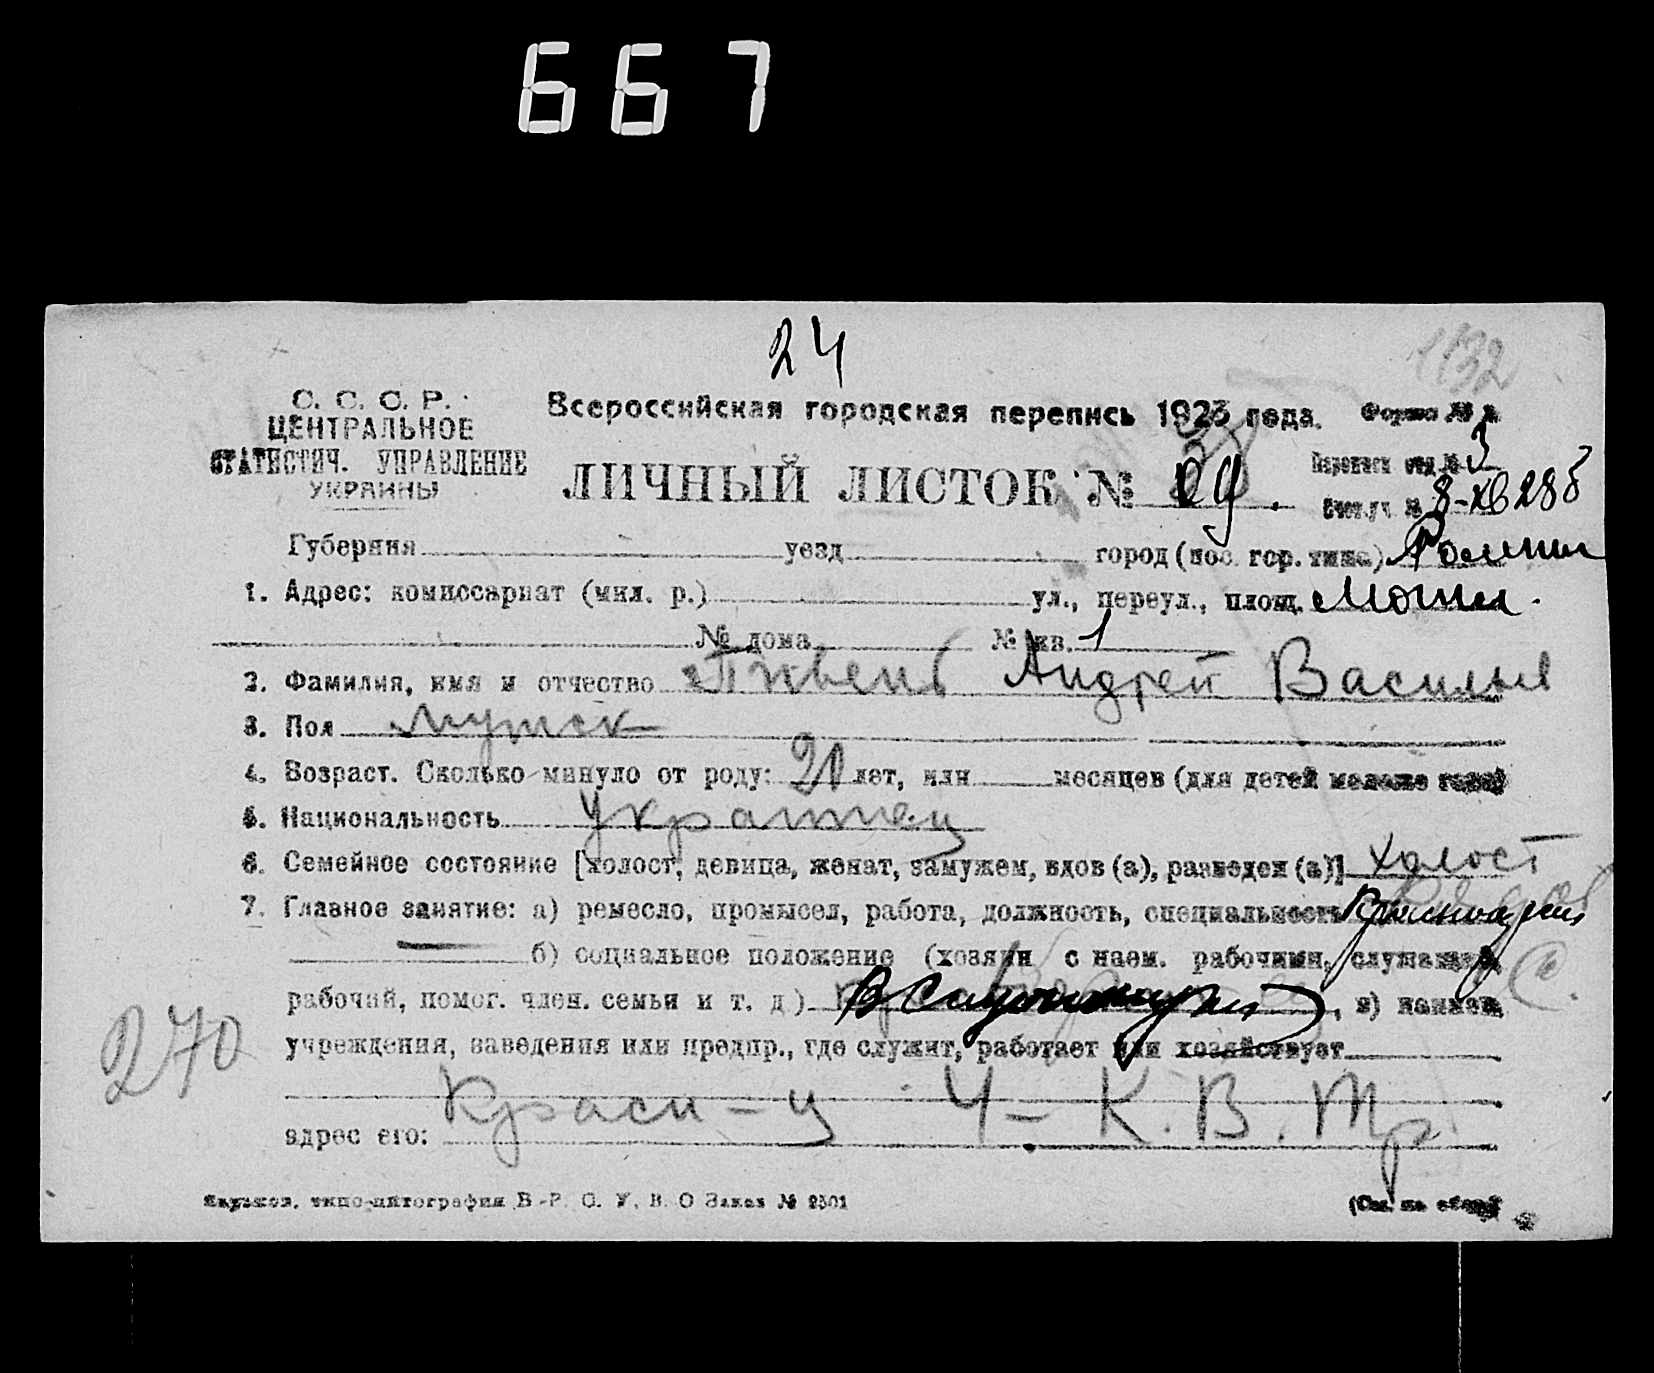 667
24
1132
С. С. С. Р.
ЦЕНТРАЛЬНОЕ
СТАТИСТИЧ. УПРАВЛЕНИЕ
УКРАИНЫ
Всероссийская городская перепись 1923 года. Форма № 2
ЛИЧНЫЙ ЛИСТОК №
3
Губерния уезд город (пос. гор. типа) Ромны
1. Адрес: комиссариат (мил. р.) ул., переул., площ.
№ дома № кв. 1
2. Фамилия, имя и отчество Пивень Андрей Васильев
3. Пол мужск
4. Возраст. Сколько минуло от роду: 20 лет, или месяцев (для детей моложе года)
5. Национальность украинец
6. Семейное состояние [холост, девица, женат, замужем, вдов (а), разведен (а)] холост
7. Главное занятие: а) ремесло, промысел, работа, должность, специальность
б) социальное положение (хозяин с наем. рабочими, служащий,
рабочий, помог. член. семьи и т. д.) , в) назван.
учреждения, заведения или предпр., где служит, работает или хозяйствует
270
Красн-ц 4- К. В. Тр.
адрес его:
Харьков. типо-литография В.-Р. С. У. В. О Заказ № 2501
(См. на обор.)